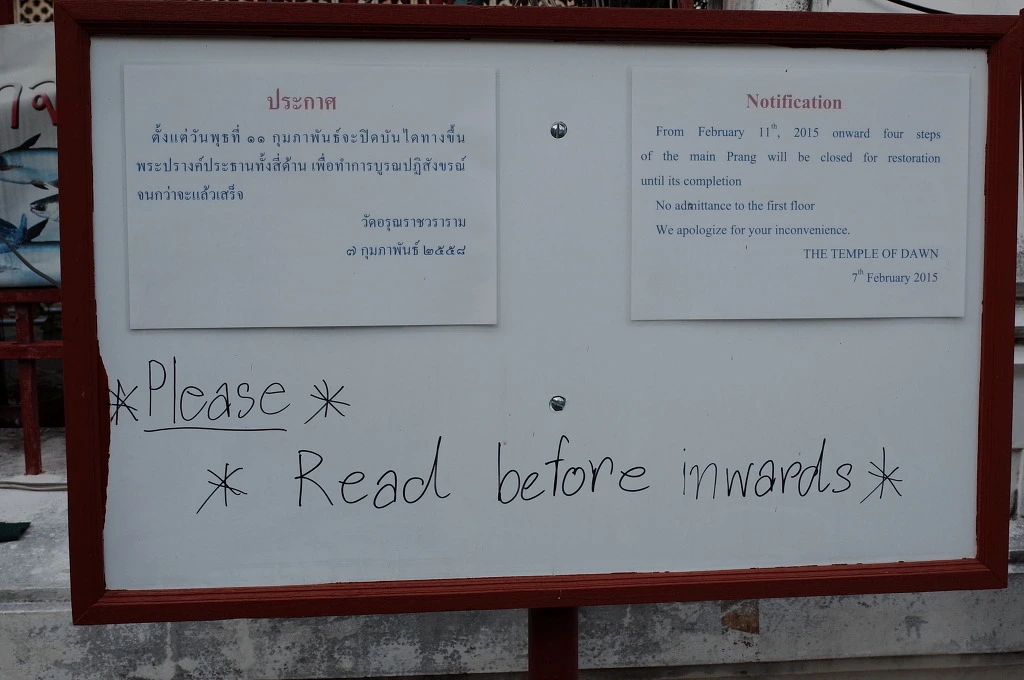 ประกาศ
ตั้งแต่วันพุธที่ ๑๑ กุมภาพันธ์จะปิดบันไดทางขึ้น
พระปรางค์ประธานทั้งสี่ด้าน เพื่อทำการบูรณปฏิสังขรณ์
จนกว่าจะแล้วเสร็จ
วัดอรุณราชวราราม
๗ กุมภาพันธ์ ๒๕๕๘
Notification
From February 11th, 2015 onward four steps
of the main Prang will be closed for restoration
until its completion
No admittance to the first floor
We apologize for your inconvenience.
THE TEMPLE OF DAWN
7th February 2015
* Please *
* Read before inwards *